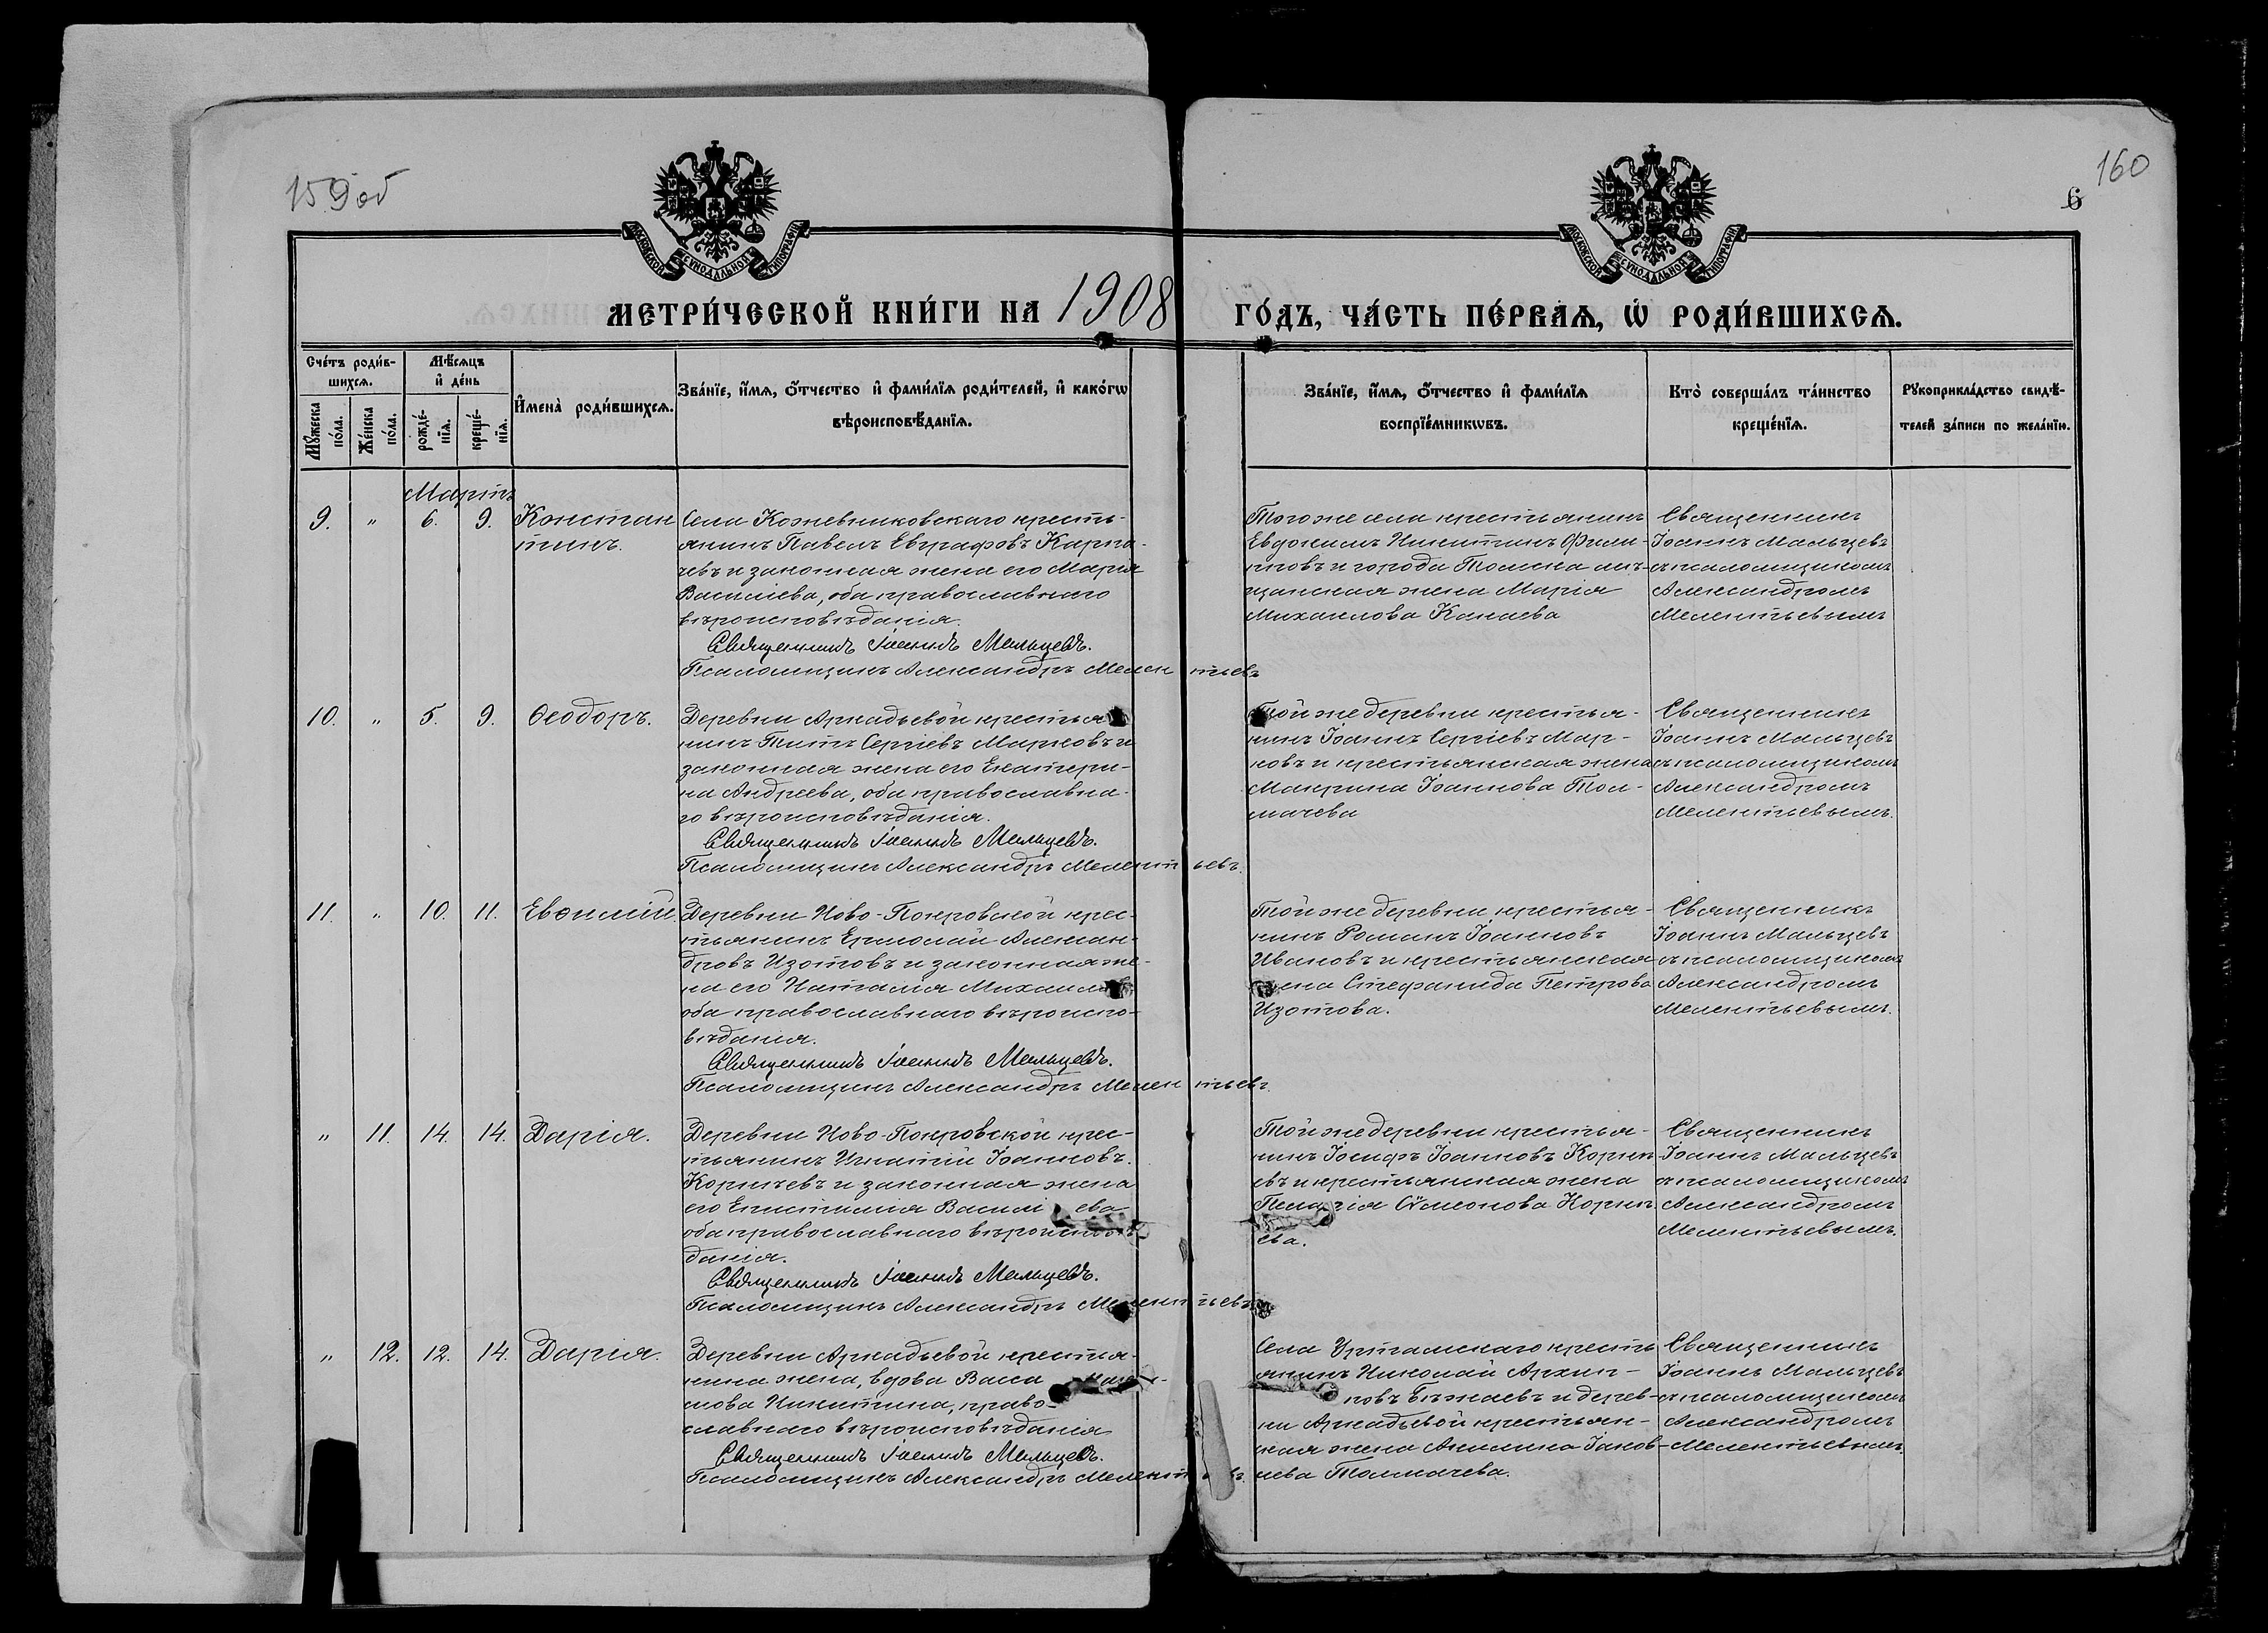 159 об
160
6
МОСКОВСКОЙ СѴНОДАЛЬНОЙ ТИПОГРАФІИ
МОСКОВСКОЙ СѴНОДАЛЬНОЙ ТИПОГРАФІИ
МЕТРИ́ЧЕСКОЙ КНИ́ГИ НА 1908 ГО́ДЪ, ЧА́СТЬ ПЕ́РВАѦ, Ѡ҆ РОДИ́ВШИХСѦ.
Сче́тъ роди́в-
шихсѧ.
Мѣ́сѧцъ
и҆ де́нь
Мꙋ́жеска
по́ла.
Же́нска
по́ла.
рожде́-
нїѧ.
креще́-
нїѧ.
И҆мена̀ роди́вшихсѧ.
Зва́нїе, и҆́мѧ, ѻ҆́тчество и҆ фами́лїѧ роди́телей, и҆ како́гѡ
вѣроисповѣ́данїѧ.
Зва́нїе, и҆́мѧ, ѻ҆́тчество и҆ фами́лїѧ
воспрїе́мникѡвъ.
Кто̀ соверша́лъ та́инство
креще́нїѧ.
Рꙋкоприкла́дство свидѣ́-
телей за́писи по жела́нїю.
Мартъ
9. " 6. 9. Констан
тинъ.
Села Кожевниковскаго кресть-
янинъ Павелъ Евграфовъ Карпа-
чевъ и законная жена его Марія
Василіева, оба православнаго
вѣроисповѣданія.
Священникъ Іоаннъ Мальцевъ.
Псаломщикъ Александръ Мелентьевъ
Того же села крестьянинъ
Евдокимъ Никитинъ Фили-
пповъ и города Томска мѣ-
щанская жена Марія
Михаилова Канаева
Священникъ
Іоаннъ Мальцевъ
съ псаломщикомъ
Александромъ
Мелентьевымъ
10. " 5. 9. Ѳеодоръ.
Деревни Аркадьевой крестья
нинъ Титъ Сергіевъ Марковъ и
законная жена его Екатери-
на Андреева, оба православна-
го вѣроисповѣданія.
Священникъ Іоаннъ Мальцевъ.
Псаломщикъ Александръ Мелентьевъ.
Той же деревни крестья-
нинъ Іоаннъ Сергіевъ Мар-
ковъ и крестьянская жена
Макрина Іоаннова Тол-
мачева
Священникъ
Іоаннъ Мальцевъ
съ псаломщикомъ
Александромъ
Мелентьевымъ.
11. " 10. 11. Евѳимій.
Деревни Ново-Покровской крес-
тьянинъ Ермолай Алексан-
дровъ Изотовъ и законная же-
на его Наталія Михаилов
оба православнаго вѣроиспо-
вѣданія.
Священникъ Іоаннъ Мальцевъ.
Псаломщикъ Александръ Мелентьевъ.
Той же деревни крестья-
нинъ Романъ Іоанновъ
Ивановъ и крестьянская
жена Стефанида Петрова
Изотова.
Священникъ
Іоаннъ Мальцевъ
съ псаломщикомъ
Александромъ
Мелентьевымъ.
" 11. 14. 14. Дарія.
Деревни Ново-Покровской крес-
тьянинъ Игнатій Іоанновъ.
Корнѣевъ и законная жена
его Епистимія Василіева
оба православнаго вѣроисповѣ
данія.
Священникъ Іоаннъ Мальцевъ.
Псаломщикъ Александръ Мелентьевъ
Той же деревни крестья-
нинъ Іосифъ Іоанновъ Корнѣ-
евъ и крестьянская жена
Пелагія Сѵмеонова Корнѣ-
ева.
Священникъ
Іоаннъ Мальцевъ
съ псаломщикомъ
Александромъ
Мелентьевымъ.
" 12. 12. 14. Дарія.
Деревни Аркадьевой крестья-
нина жена, вдова Васса
мова Никитина, право-
славнаго вѣроисповѣданія
Священникъ Іоаннъ Мальцевъ.
Псаломщикъ Александръ Мелентьевъ.
Села Уртамскаго кресть
янинъ Николай Архип-
повъ Бѣжаевъ и дерев-
ни Аркадьевой крестьян-
ская жена Акилина Іаков-
лева Толмачева.
Священникъ
Іоаннъ Мальцевъ
съ псаломщикомъ
Александромъ
Мелентьевымъ.